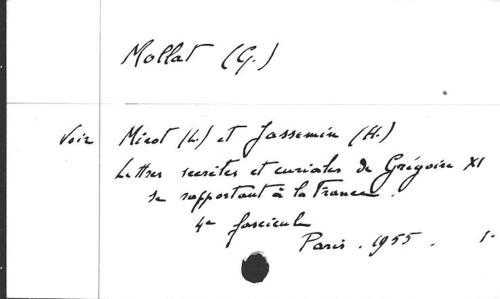 Mollat (G.)
Voir Mirot (L.) et Jassemin (H.)
Lettres secrètes et curiales de Grégoire XI
se rapportant à la France.
4e fascicule
Paris. 1955.